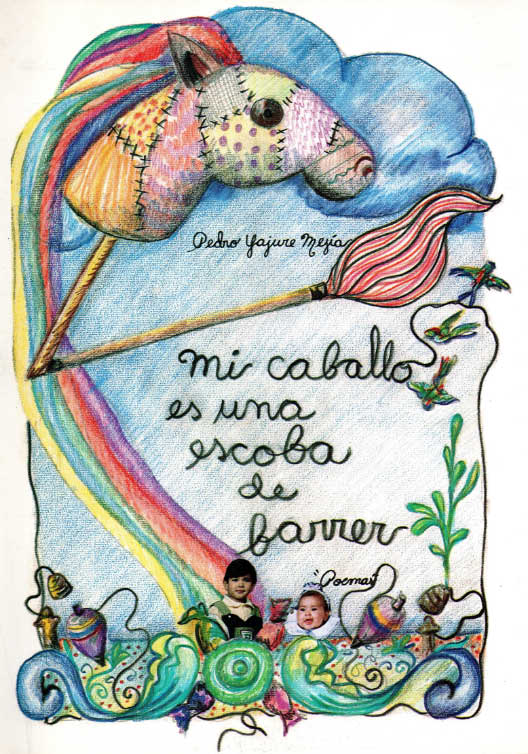 Pedro Yajure Mejía
mi caballo
es una
escoba
de
barrer
"Poemas"